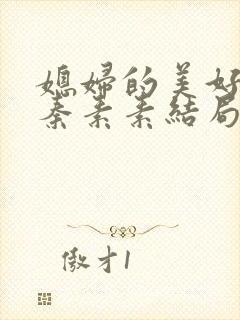 媳婦的美好
秦素素結局
傲才1